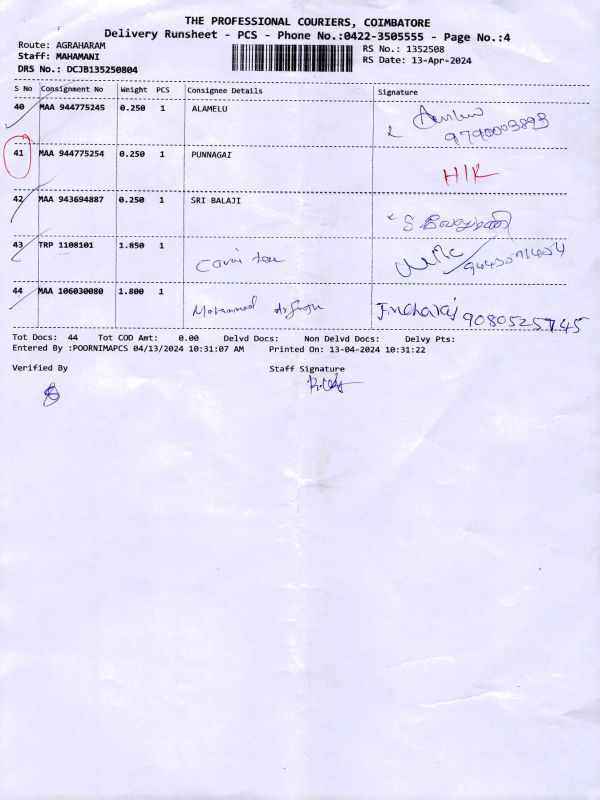 THE PROFESSIONAL COURIERS, COIMBATORE
Delivery Runsheet - PCS - Phone No.:0422-3505555 - Page No.:4
Route: AGRAHARAM
RS No.: 1352508
Staff: MAHAMANI
RS Date: 13-Apr-2024
DRS No.: DCJB135250804
S No Consignment No Weight PCS Consignee Details Signature
40 MAA 944775245 0.250 1 ALAMELU
9790003893
41 MAA 944775254 0.250 1 PUNNAGAI HIK
42 MAA 943694887 0.250 1 SRI BALAJI
43 TRP 1108101 1.850 1
44 MAA 106030080 1.800 1 Mohammed
9080525745
Tot Docs: 44 Tot COD Amt: 0.00 Delvd Docs: Non Delvd Docs: Delvy Pts:
Entered By :POORNIMAPCS 04/13/2024 10:31:07 AM Printed On: 13-04-2024 10:31:22
Verified By Staff Signature